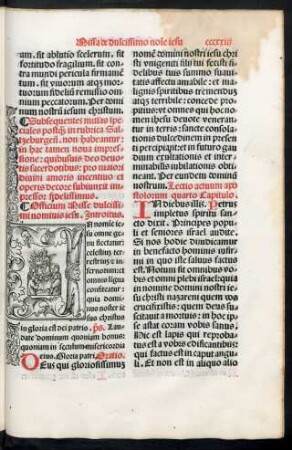 Missa de dulcissimo noīe iesu
ccccxiii
rum. sit ablutio scelerum. sit
fortitudo fragilium. sit con
tra mundi pericula firmamē
tum. sit viuorum atqȝ mor
tuorum fidelium remissio om
nium peccatorum. Per domi
num nostrum iesum christum.
Subsequentes misse spe
ciales postqȝ in rubrica Sal
tzeburgeñ. non habeantur:
in hac tamen noua impres
sione: quibusuis deo deuo
tis sacerdotibus: pro maiori
diuini amoris incentiuo et
operis decore subiunxit im
pressor fidelissimus.
Officium Misse dulcissi
mi nominis iesu. Introitus.
In nomie ie
su omne ge
nu flectatur:
celestium
terrestrium ⁊
infernorum
et omnis
lingua
confiteatur:
quia domi
nus noster ie
sus christus
in gloria est dei patris. ps. Lau
date dominum quoniam bonus:
quoniam in seculum misericordia
eius. Gloria patri. Oratio.
Deus qui gloriosissimuȝ
nomē domini nostri iesu chri
sti vnigeniti filii tui fecisti fi
delibus tuis summo suaui
tatis affectu amabile: et ma
lignis spiritibus tremendū
atqȝ terribile: concede pro
pitius: vt omnes qui hoc no
men ihesu deuote veneran
tur in terris: sancte consola
tionis dulcedinem in presen
ti percipiant: et in futuro gau
dium exultationis et inter
minabilis iubilationis obti
neant. Per eundem dominū
nostrum. Lectio actuum apo
stolorum quarto Capitulo.
In diebus illis. Petrus
impletus spiritu san
cto dixit. Principes popu
li et seniores israel audite.
Si nos hodie diiudicamur
in benefacto hominis infir
mi in quo iste saluus factus
est: Notum sit omnibus vo
bis et omni plebi israel: quia
in nomine domini nostri ie
su christi nazareni quem vos
crucifixistis: quem deus su
scitauit a mortuis: in hoc ip
se astat coram vobis sanus.
Hic est lapis qui reproba
tus est a vobis edificantibus:
qui factus est in caput angu
li. Et non est in aliquo alio